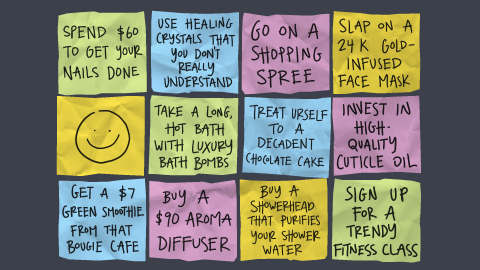 SPEND $60
TO GET YOUR
NAILS DONE
USE HEALING
CRYSTALS THAT
YOU DON'T
REALLY
UNDERSTAND
GO ON A
SHOPPING
SPREE
SLAP ON A
24 K GOLD-
INFUSED
FACE MASK
TAKE A LONG,
HOT BATH
WITH LUXURY
BATH BOMBS
TREAT URSELF
TO A
DECADENT
CHOCOLATE CAKE
INVEST IN
HIGH-
QUALITY
CUTICLE OIL
GET A $7
GREEN SMOOTHIE
FROM THAT
BOUGIE CAFE
BUY A
$90 AROMA
DIFFUSER
BUY A
SHOWERHEAD
THAT PURIFIES
YOUR SHOWER
WATER
SIGN UP
FOR A
TRENDY
FITNESS CLASS